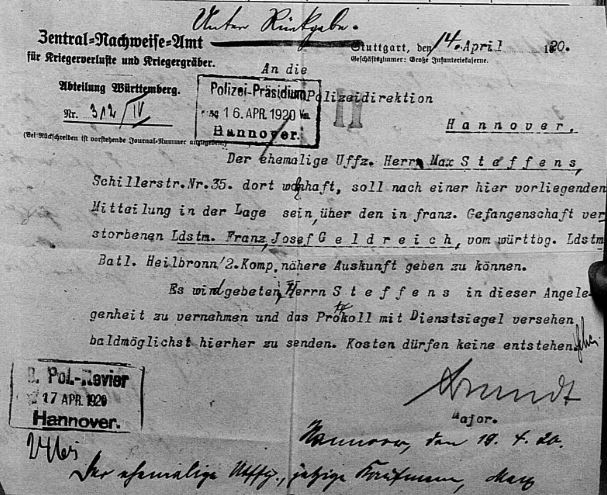 Unter Rückgabe.
Zentral=Nachweise=Amt
für Kriegerverluste und Kriegergräber.
Stuttgart, den 14. April 1920.
Geschäftszimmer: Große Infanteriekaserne.
Abteilung Württemberg.
Nr. 312/IV
(Bei Rückschreiben ist vorstehende Journal-Nummer anzugeben)
An die
Polizei-Präsidium
16. APR. 1920
Hannover.
II
Polizeidirektion
Hannover.
Der ehemalige Uffz. Herr Max Steffens,
Schillerstr.Nr.35. dort wohnhaft, soll nach einer hier vorliegenden
Mitteilung in der Lage sein, über den in franz. Gefangenschaft ver
storbenen Ldstm. Franz Josef Geldreich, vom württbg. Ldstm
Batl. Heilbronn/2.Komp. nähere Auskunft geben zu können.
Es wird gebeten, Herrn Steffens in dieser Angele-
genheit zu vernehmen und das Protokoll mit Dienstsiegel versehen
baldmöglichst hierher zu senden. Kosten dürfen keine entstehen.
Pol.-Revier
17 APR. 1920
Hannover.
Major.
Hannover, den 19. 4. 20.
Der ehemalige Uffz., jetzige Kaufmann, Max